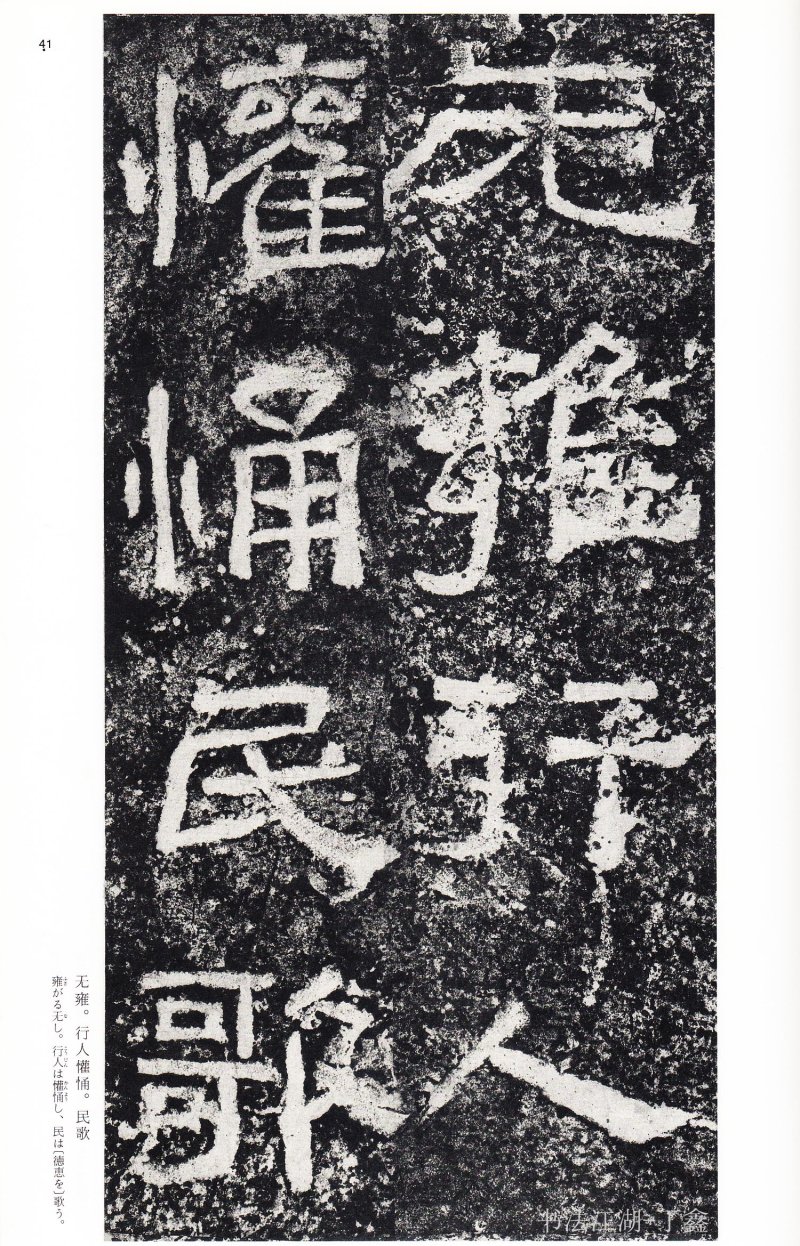 41
无雍行人
懽悀民歌
无雍。行人懽悀。民歌
雍がる无し。行人は懽悀し、民は〔德恵を〕歌う。
书法江湖 了鑫